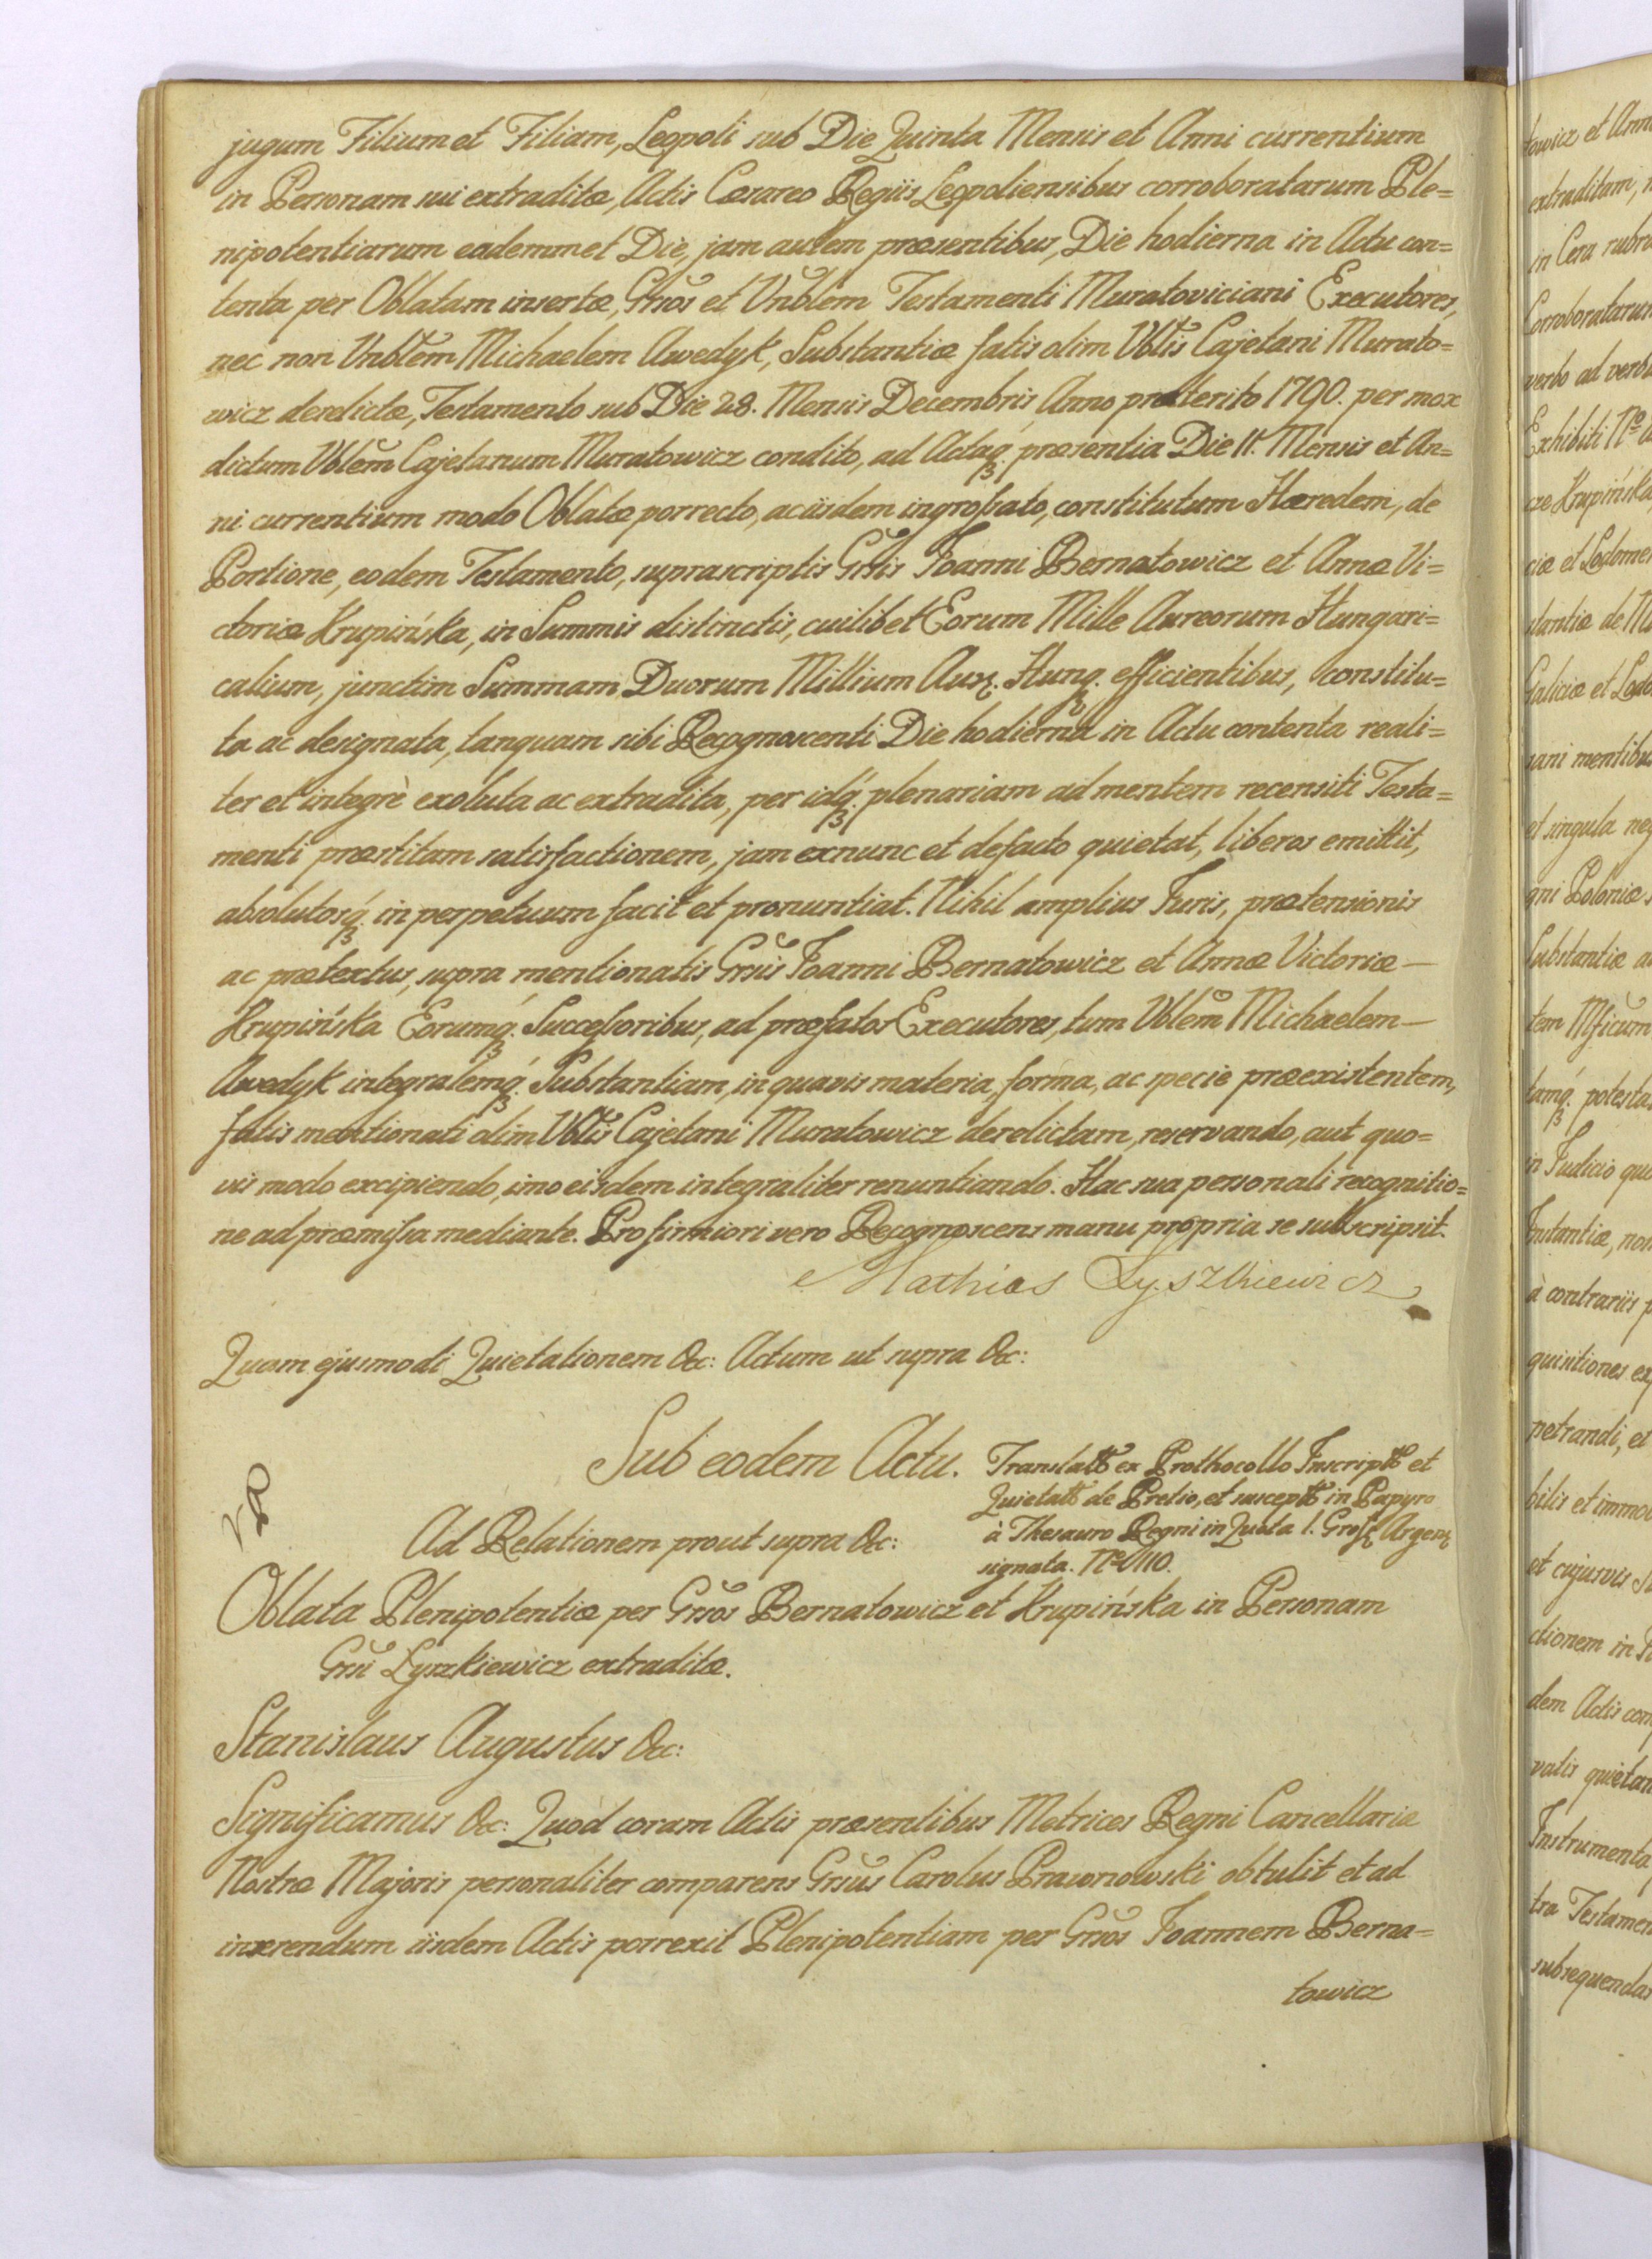 jugum Filium et Filiam, Leopoli sub Die Quinta Mensis et Anni currentium
in Personam sui extraditæ, Actis Cæsareo Regiis Leopoliensibus corroboratarum Ple=
nipotentiarum eademmet Die, jam autem præsentibus, Die hodierna in Actu con=
tenta per Oblatam insertæ, Grsos et Vnblem Testamenti Muratoviciani Executores,
nec non Vnblem Michaelem Awedyk, Substantiæ fatis olim Vblis Cajetani Murato=
wicz derelictæ, Testamento sub Die 28. Mensis Decembris Anno præterito 1790. per mox
dictum Vblem Cajetanum Muratowicz condito, ad Actaq. præsentia Die 11. Mensis et An=
ni currentium modo Oblatæ porrecto, ac iisdem ingrossato, constitutum Hæredem, de
Portione, eodem Testamento, suprascriptis Grsis Joanni Bernatowicz et Annæ Vi=
ctoriæ Krupińska, in Summis distinctis, cuilibet Eorum Mille Aureorum Hungari=
calium, junctim Summam Duorum Millium Aur. Hung. efficientibus, constitu=
ta ac designata, tanquam sibi Recognoscenti Die hodierna in Actu contenta reali=
ter et integrè exoluta ac extradita, per idq. plenariam ad mentem recensiti Testa=
menti præstitam satisfactionem, jam exnunc et defacto quietat, liberos emittit,
absolutosq. in perpetuum facit et pronuntiat. Nihil amplius Juris, prætensionis
ac prætextus, supra mentionatis Grsis Joanni Bernatowicz et Annæ Victoriæ —
Krupińska Eorumq. Successoribus, ad præfatos Executores, tum Vblem Michaelem —
Awedyk integralemq. Substantiam, in quavis materia, forma, ac specie præexistentem,
fatis mentionati olim Vblis Cajetani Muratowicz derelictam, reservando, aut quo=
vis modo excipiendo, imo eisdem integraliter renuntiando. Hac sua personali recognitio=
ne ad præmissa mediante. Pro firmiori vero Recognoscens manu propria se subscripsit.
Mathias Łyszkiewicz
Quam ejusmodi Quietationem &c: Actum ut supra &c:
Sub eodem Actu.
Translatt ex Prothocollo Inscriptt et
Quietatt de Pretio, et susceptt in Papyro
à Thesauro Regni in Quota 1. Gross Argent
signata. No 110.
Ad Relationem prout supra &c:
Oblata Plenipotentiæ per Grsos Bernatowicz et Krupińska in Personam
Grsi Łyszkiewicz extraditæ.
Stanislaus Augustus &c:
Significamus &c: Quod coram Actis præsentibus Metrices Regni Cancellariæ
Nostræ Majoris personaliter comparens Grsus Carolus Prawnowski obtulit et ad
inserendum iisdem Actis porrexit Plenipotentiam per Grsos Joannem Berna=
towicz